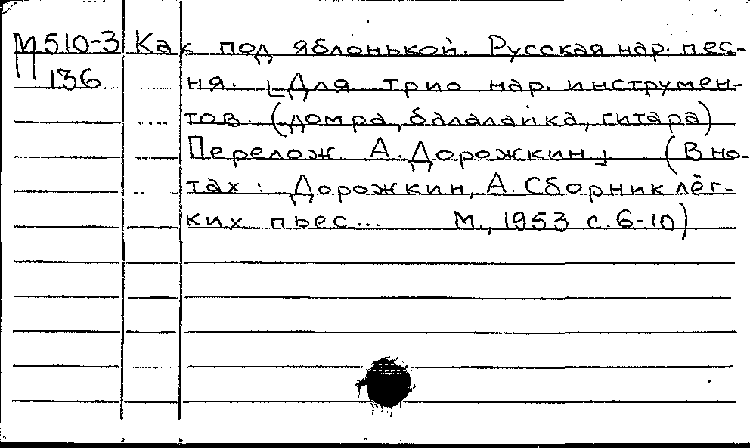 М 510-3 Как под яблонькой. Русская нар. пес-
136 ня. [Для трио нар. инструмен-
тов (домра, балалайка, гитара)
Перелож. А. Дорожкин] (В но-
тах: Дорожкин, А. Сборник лёг-
ких пьес... М., 1953 с. 6-10)